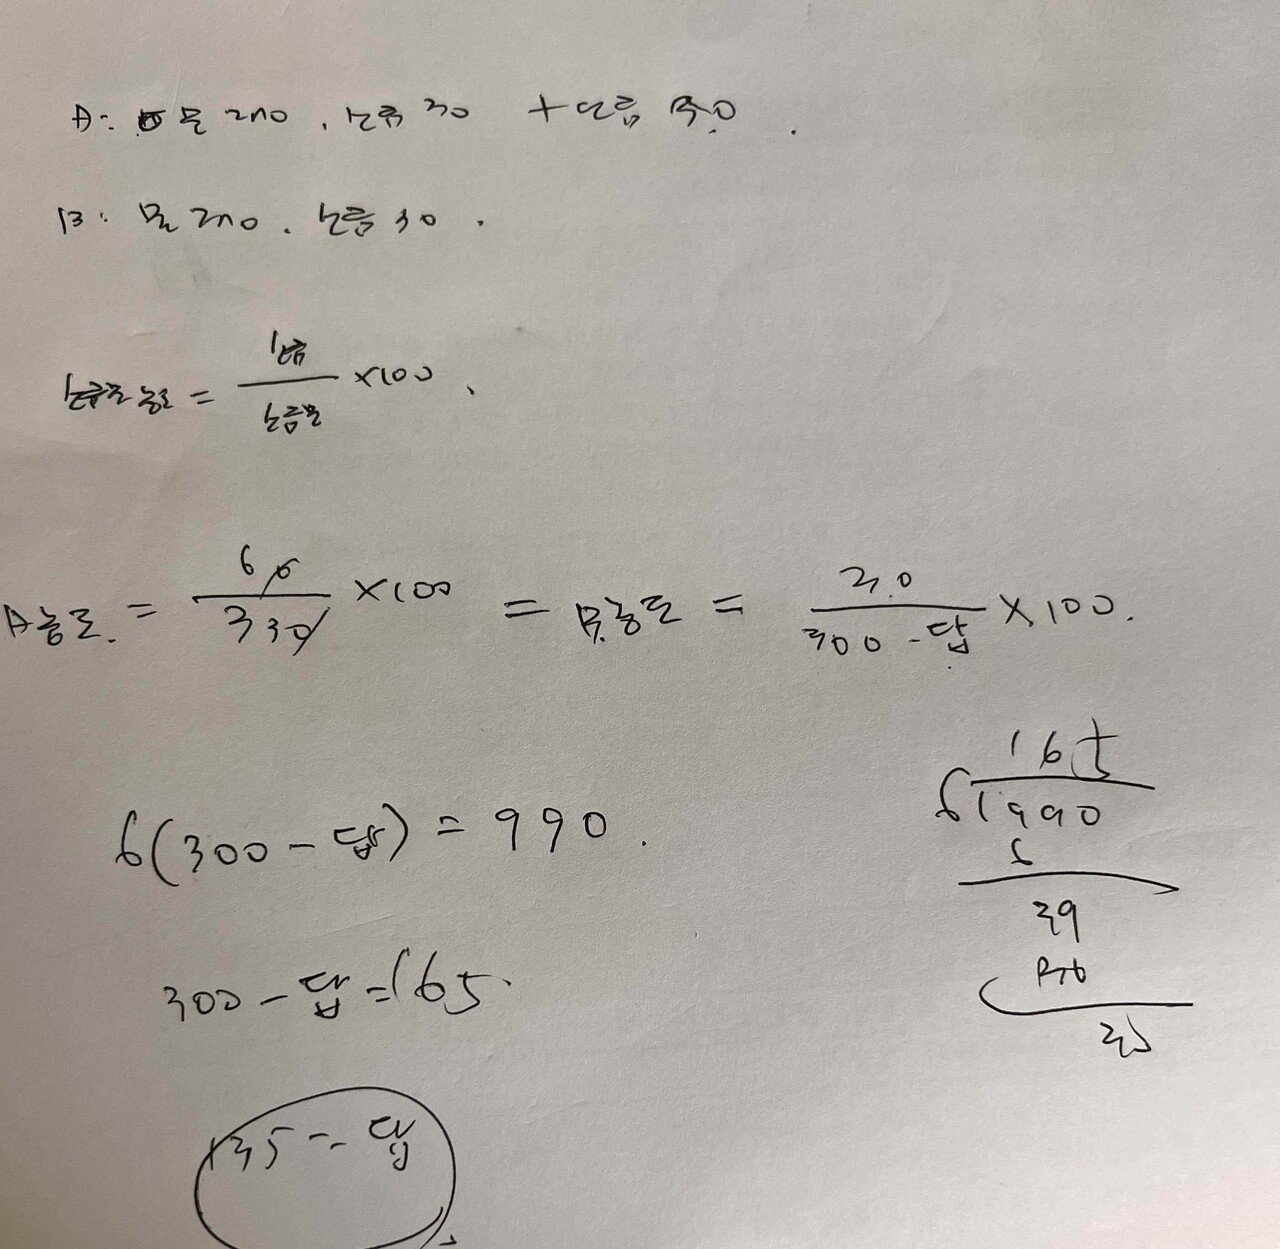 A: 물 270, 소금 30 + 소금 30.
B: 물 270. 소금 30.
소금물 농도 = 소금 / 소금물 ×100.
A농도. = 66 / 330 ×100 = B농도 = 30 / 300 - 답 ×100.
6(300 - 답) = 990.
300 - 답 = 165.
135 = 답
165
6 990
6
39
36